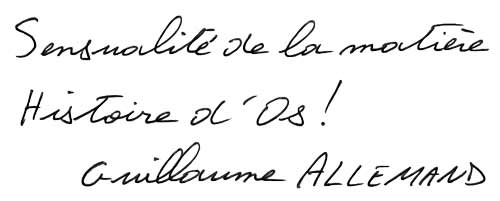 Sensualité de la matière
Histoire d'Os !
Guillaume ALLEMAND